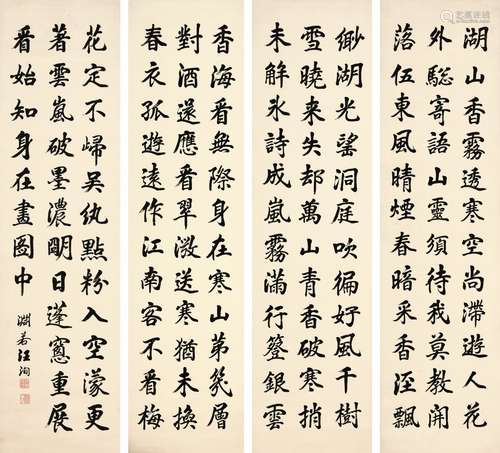 湖山香霧透寒空尚滯遊人花
外驄寄語山靈須待我莫教開
落任東風晴煙春暗采香涇飄
緲湖光望洞庭吹徧好風千樹
雪曉来失却萬山青香破寒梢
未解氷詩成嵐霧滿行簦銀雲
香海看無際身在寒山第幾層
對酒還應看翠微送寒猶未換
春衣孤遊遠作江南客不看梅
花定不歸吳紈點粉入空濛更
著雲嵐破墨濃明日蓬窻重展
看始知身在畫圖中
淵若汪洵